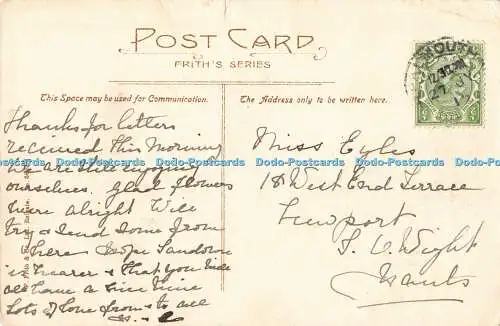 POST CARD
FRITH'S SERIES
This Space may be used for Communication.
The Address only to be written here.
Thanks for letters
received this morning
we are still enjoying
ourselves. Glad flowers
were alright Will
try & send some from
here Sandown
is nearer & that you
all have a nice time
Lots of love from to all
Miss Eyles
18 West End Terrace
Newport
I. O. Wight
Hants
Dodo-Postcards Dodo-Postcards Dodo-Postcards Dodo-Postcards Dodo-Postcards Dodo-Postcards